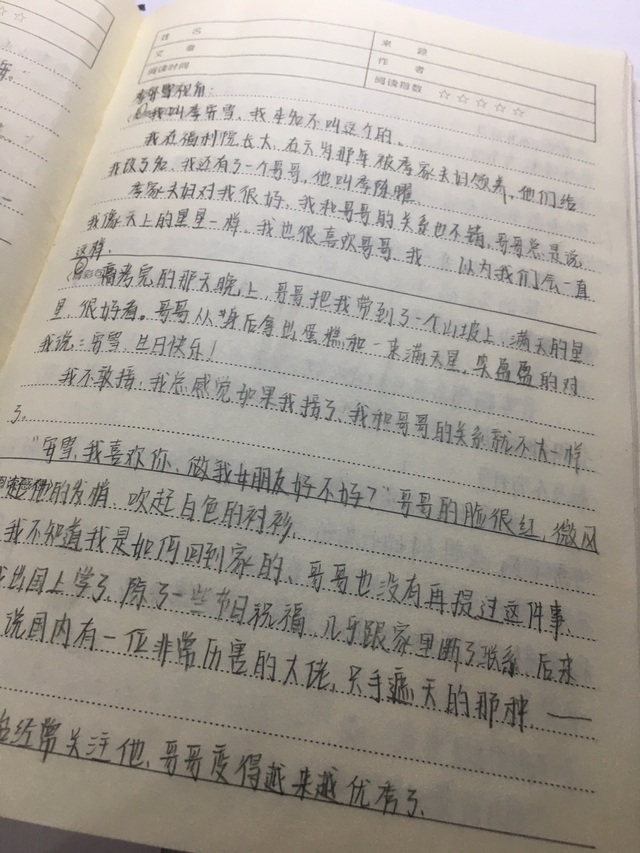 姓 名
来 源
文 章
作 者
阅读时间
阅读指数 ☆☆☆☆☆
李安雪视角:
我叫李安雪,我本如不叫这个的。
我在福利院长大,在六岁那年被李家夫妇领养,他们给
我改了名,我还有了一个哥哥,他叫李陈曜
李家夫妇对我很好,我和哥哥的关系也不错,哥哥总是说
我像天上的星星一样,我也很喜欢哥哥,我……以为我们会一直
这样.
高考完的那天晚上,哥哥把我带到了一个山坡上,满天的星
星,很好看。哥哥从身后拿出蛋糕和一束满天星,笑盈盈的对
我说:安雪,生日快乐!
我不敢接,我总感觉如果我接了,我和哥哥的关系就不太一样
了.
"安雪,我喜欢你,做我女朋友好不好?"哥哥的脸很红,微风
起他的发梢、吹起白色的衬衫.
我不知道我是如何回到家的、哥哥也没有再提过这件事.
出国上学了,除了一些节日祝福,几乎跟家里断了联系.后来
说国内有一位非常厉害的大佬,只手遮天的那种.——
经常关注他,哥哥变得越来越优秀了.